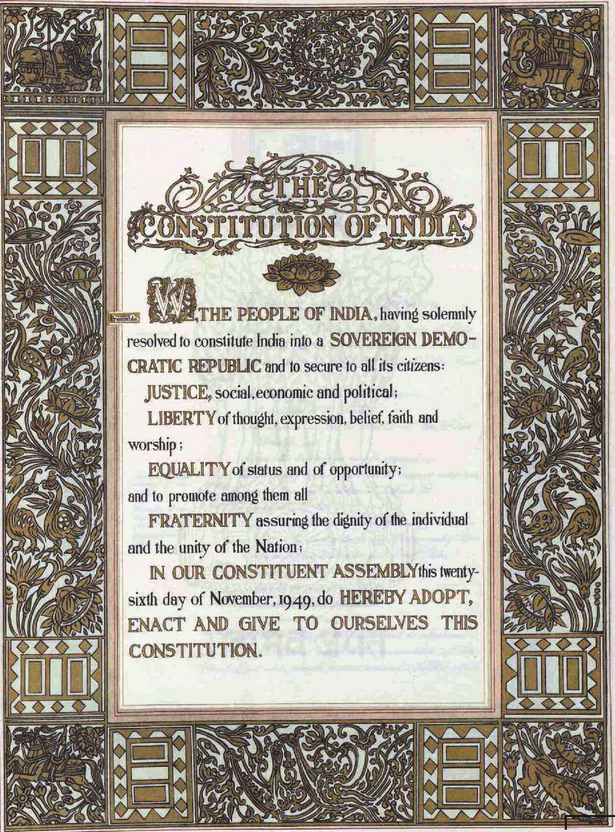 THE
CONSTITUTION OF INDIA
WE, THE PEOPLE OF INDIA, having solemnly
resolved to constitute India into a SOVEREIGN DEMO-
CRATIC REPUBLIC and to secure to all its citizens:
JUSTICE, social, economic and political;
LIBERTY of thought, expression, belief, faith and
worship;
EQUALITY of status and of opportunity;
and to promote among them all
FRATERNITY assuring the dignity of the individual
and the unity of the Nation;
IN OUR CONSTITUENT ASSEMBLY this twenty-
sixth day of November, 1949, do HEREBY ADOPT,
ENACT AND GIVE TO OURSELVES THIS
CONSTITUTION.